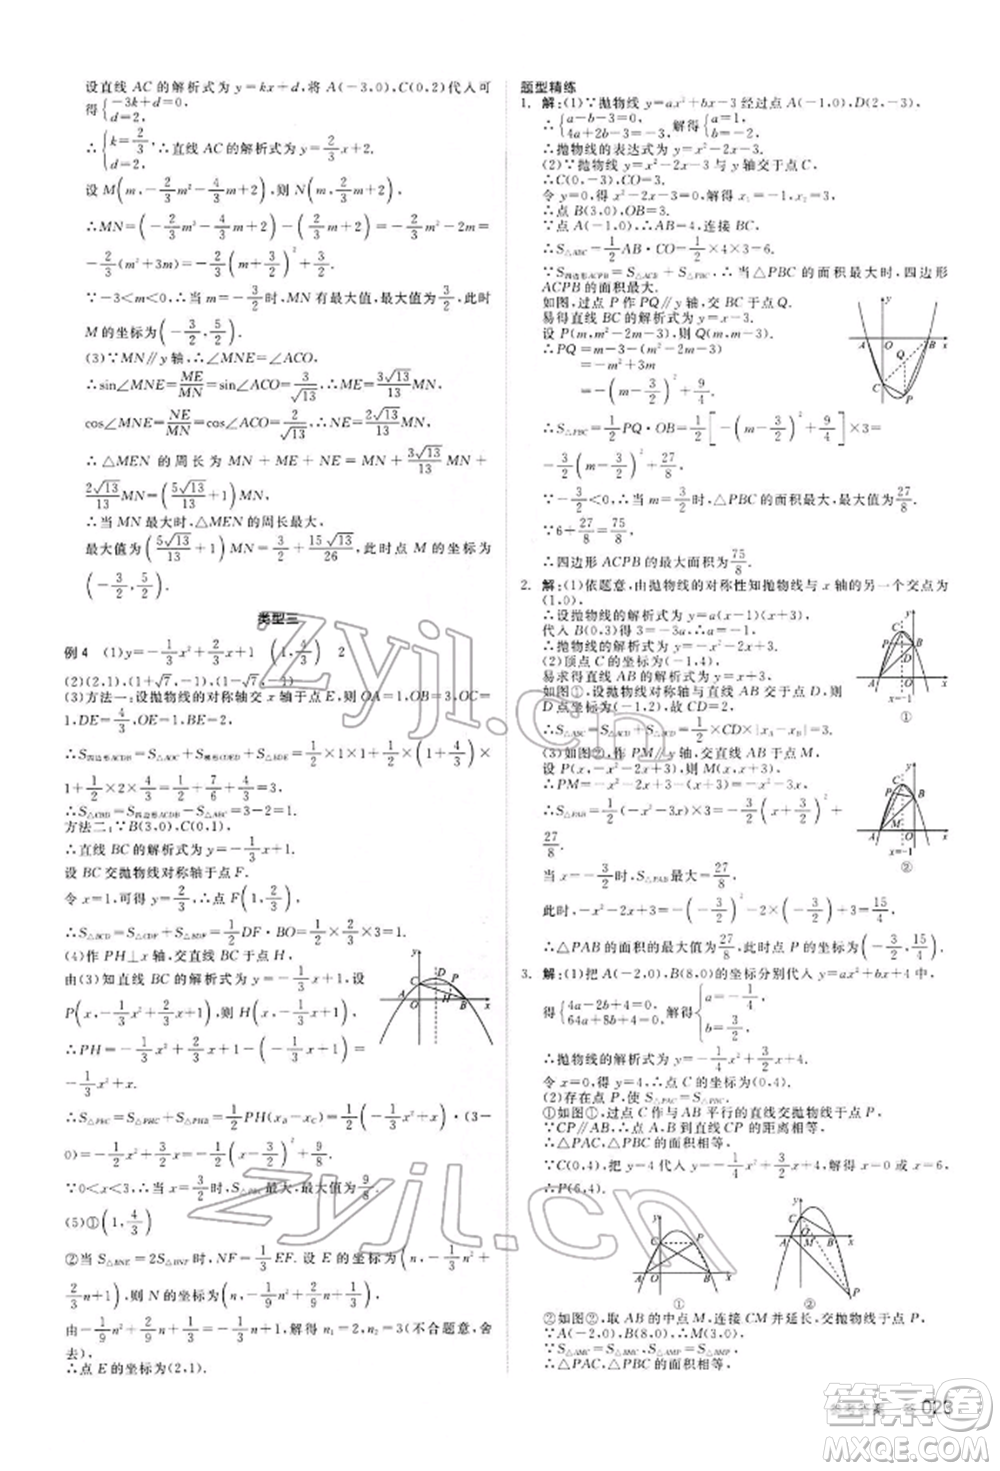 设直线 AC 的解析式为 y=kx+d,将 A(-3,0),C(0,2)代入可
得{-3k+d=0, d=2,
∴{k=2/3, d=2, ∴直线 AC 的解析式为 y=2/3x+2.
设 M(m,-2/3m²-4/3m+2),则 N(m,2/3m+2),
-2/3(m²+3m)=-2/3(m+3/2)²+3/2.
∵-3<m<0,∴当 m=-3/2时,MN 有最大值,最大值为3/2,此时
M 的坐标为(-3/2,5/2).
(3)∵MN∥y 轴,∴∠MNE=∠ACO.
∴sin∠MNE=ME/MN=sin∠ACO=3/√13,∴ME=3√13/13MN,
cos∠MNE=NE/MN=cos∠ACO=2/√13,∴NE=2√13/13MN.
∴△MEN 的周长为 MN+ME+NE=MN+3√13/13MN+
2√13/13MN=(5√13/13+1)MN.
∴当 MN 最大时,△MEN 的周长最大,
最大值为(5√13/13+1)MN=3/2+15√13/26,此时点 M 的坐标为
(-3/2,5/2).
类型三
例 4 (1)y=-1/3x²+2/3x+1 (1,4/3) 2
(2)(2,1),(1+√7,-1),(1-√7,-1)
(3)方法一:设抛物线的对称轴交 x 轴于点 E,则 OA=1,OB=3,OC=
1,DE=4/3,OE=1,BE=2.
∴S四边形ACDB=S△AOC+S梯形COED+S△BDE=1/2×1×1+1/2×(1+4/3)×
1+1/2×2×4/3=1/2+7/6+4/3=3.
∴S△CBD=S四边形ACDB-S△ABC=3-2=1.
方法二:∵B(3,0),C(0,1),
∴直线 BC 的解析式为 y=-1/3x+1.
设 BC 交抛物线对称轴于点 F.
令 x=1,可得 y=2/3,∴点 F(1,2/3).
∴S△BCD=S△CDF+S△BDF=1/2DF·BO=1/2×2/3×3=1.
(4)作 PH⊥x 轴,交直线 BC 于点 H.
由(3)知直线 BC 的解析式为 y=-1/3x+1,设
P(x,-1/3x²+2/3x+1),则 H(x,-1/3x+1),
∴PH=-1/3x²+2/3x+1-(-1/3x+1)=
-1/3x²+x.
∴S△PBC=S△PHC+S△PHB=1/2PH(xB-xC)=1/2×(-1/3x²+x)·(3-
0)=-1/2x²+3/2x=-1/2(x-3/2)²+9/8.
∵0<x<3,∴当 x=3/2时,S△PBC最大,最大值为9/8.
(5)①(1,4/3)
②当 S△BNE=2S△BNF时,NF=1/3EF.设 E 的坐标为(n,-1/3n²+
2/3n+1),则 N 的坐标为(n,-1/9n²+
由-1/9n²+ 解得 n₁=2,n₂=3(不合题意,舍
去),
∴点 E 的坐标为(2,1).
题型精练
1. 解:(1)∵抛物线 y=ax²+bx-3 经过点 A(-1,0),D(2,-3),
∴{a-b-3=0, 4a+2b-3=-3, 解得{a=1, b=-2.
∴抛物线的表达式为 y=x²-2x-3.
(2)∵抛物线 y=x²-2x-3 与 y 轴交于点 C,
∴C(0,-3),CO=3.
令 y=0,得 x²-2x-3=0,解得 x₁=-1,x₂=3,
∴点 B(3,0),OB=3.
∵点 A(-1,0),∴AB=4,连接 BC,
∴S△ABC=1/2AB·CO=1/2×4×3=6.
∵S四边形ACPB=S△ACB+S△PBC,∴当△PBC 的面积最大时,四边形
ACPB 的面积最大.
如图,过点 P 作 PQ∥y 轴,交 BC 于点 Q.
易得直线 BC 的解析式为 y=x-3.
设 P(m,m²-2m-3),则 Q(m,m-3),
∴PQ=m-3-m²+2m+3
=-m²+3m
=-(m-3/2)²+9/4.
∴S△PBC=1/2PQ·OB=1/2[-(m-3/2)²+9/4]×3=
-3/2(m-3/2)²+27/8.
∵-3/2<0,∴当 m=3/2时,△PBC 的面积最大,最大值为27/8.
∵6+27/8=75/8,
∴四边形 ACPB 的最大面积为75/8.
2. 解:(1)依题意,由抛物线的对称性知抛物线与 x 轴的另一个交点为
(1,0),
∴设抛物线的解析式为 y=a(x-1)(x+3),
代入 B(0,3)得 3=-3a,∴a=-1.
∴抛物线的解析式为 y=-x²-2x+3.
(2)顶点 C 的坐标为(-1,4),
由点 A(-3,0),B(0,3)得直线 AB 的解析式为 y=x+3.
如图①,设抛物线对称轴与直线 AB 交于点 D,则
D 点坐标为(-1,2),故 CD=2.
(3)如图②,作 PM∥y 轴,交直线 AB 于点 M,
设 P(x,-x²-2x+3),则 M(x,x+3),
∴PM=-x²-2x+3-(x+3)=-x²-3x.
∴S△PAB=1/2(-x²-3x)×3=-3/2(x+3/2)²+
27/8.
∴当 x=-3/2时,S△PAB最大=27/8.
此时,-x²-2x+3=-(-3/2)²-2×(-3/2)+3=15/4,
∴△PAB 的面积的最大值为27/8,此时点 P 的坐标为(-3/2,15/4).
3. 解:(1)把 A(-2,0),B(8,0)的坐标分别代入 y=ax²+bx+4 中,
得{4a-2b+4=0, 64a+8b+4=0, 解得{a=-1/4, b=3/2.
∴抛物线的解析式为 y=-1/4x²+3/2x+4.
令 x=0,得 y=4,∴点 C 的坐标为(0,4).
(2)存在点 P,使 S△PAC=S△PBC.
①如图①,过点 C 作与 AB 平行的直线交抛物线于点 P,
∵CP∥AB,∴点 A,B 与直线 CP 的距离相等,
∴△PAC,△PBC 的面积相等.
∵C(0,4),∴把 y=4 代入 y=-1/4x²+3/2x+4,解得 x=0 或 x=6.
∴P(6,4).
②如图②,取 AB 的中点 M,连接 CM 并延长,交抛物线于点 P,
∵A(-2,0),B(8,0),∴M(3,0).
∴△PAC 与△PBC 的面积相等.
参考答案 答 023
Zyjl.cn
zyjl.cn
答案圈
MXQE.COM